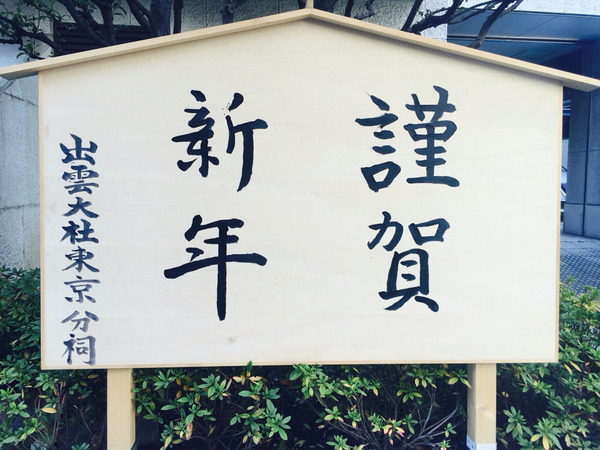 謹賀
新年
出雲大社東京分祠